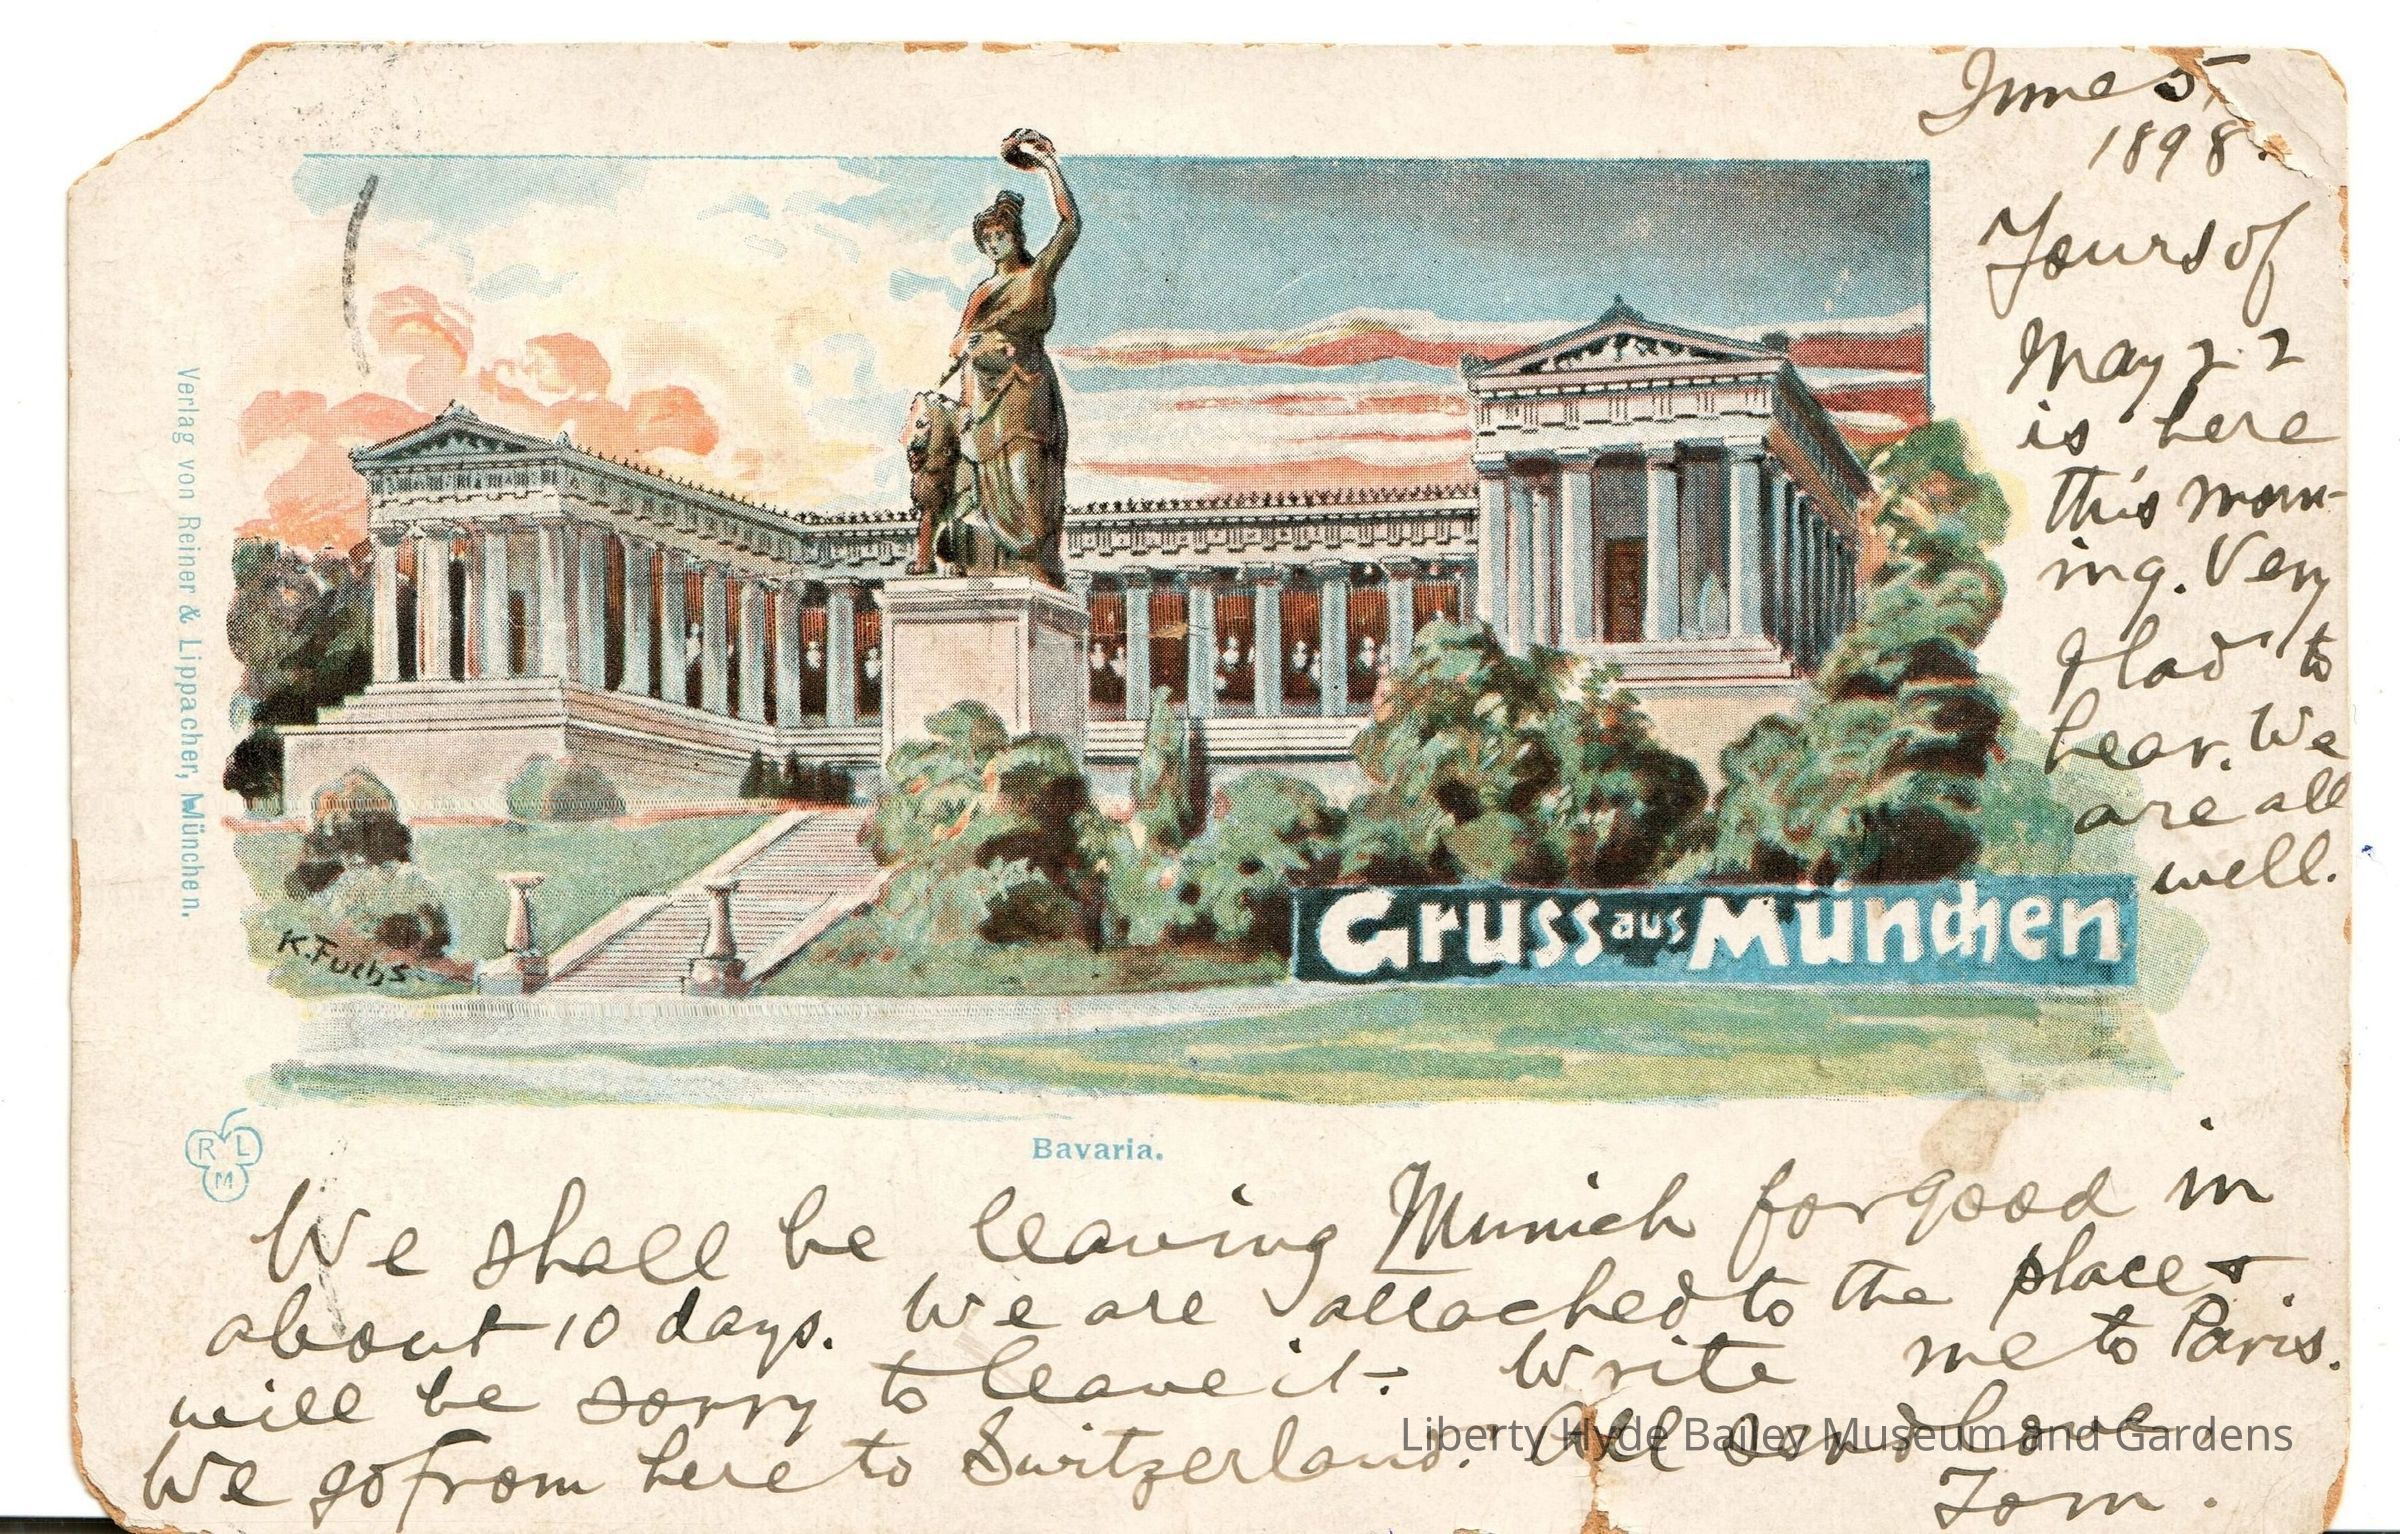 June 5,
1898.
Yours of
May 22
is here
this morn-
ing. Very
glad to
hear. We
are all
well.
Verlag von Reiner & Lippacher, München.
K. Fuchs.
Gruss aus München
R L
M
Bavaria.
We shall be leaving Munich for good in
about 10 days. We are attached to the place &
will be sorry to leave it. Write me to Paris.
We go from here to Switzerland. All send love
Tom.
Liberty Hyde Bailey Museum and Gardens